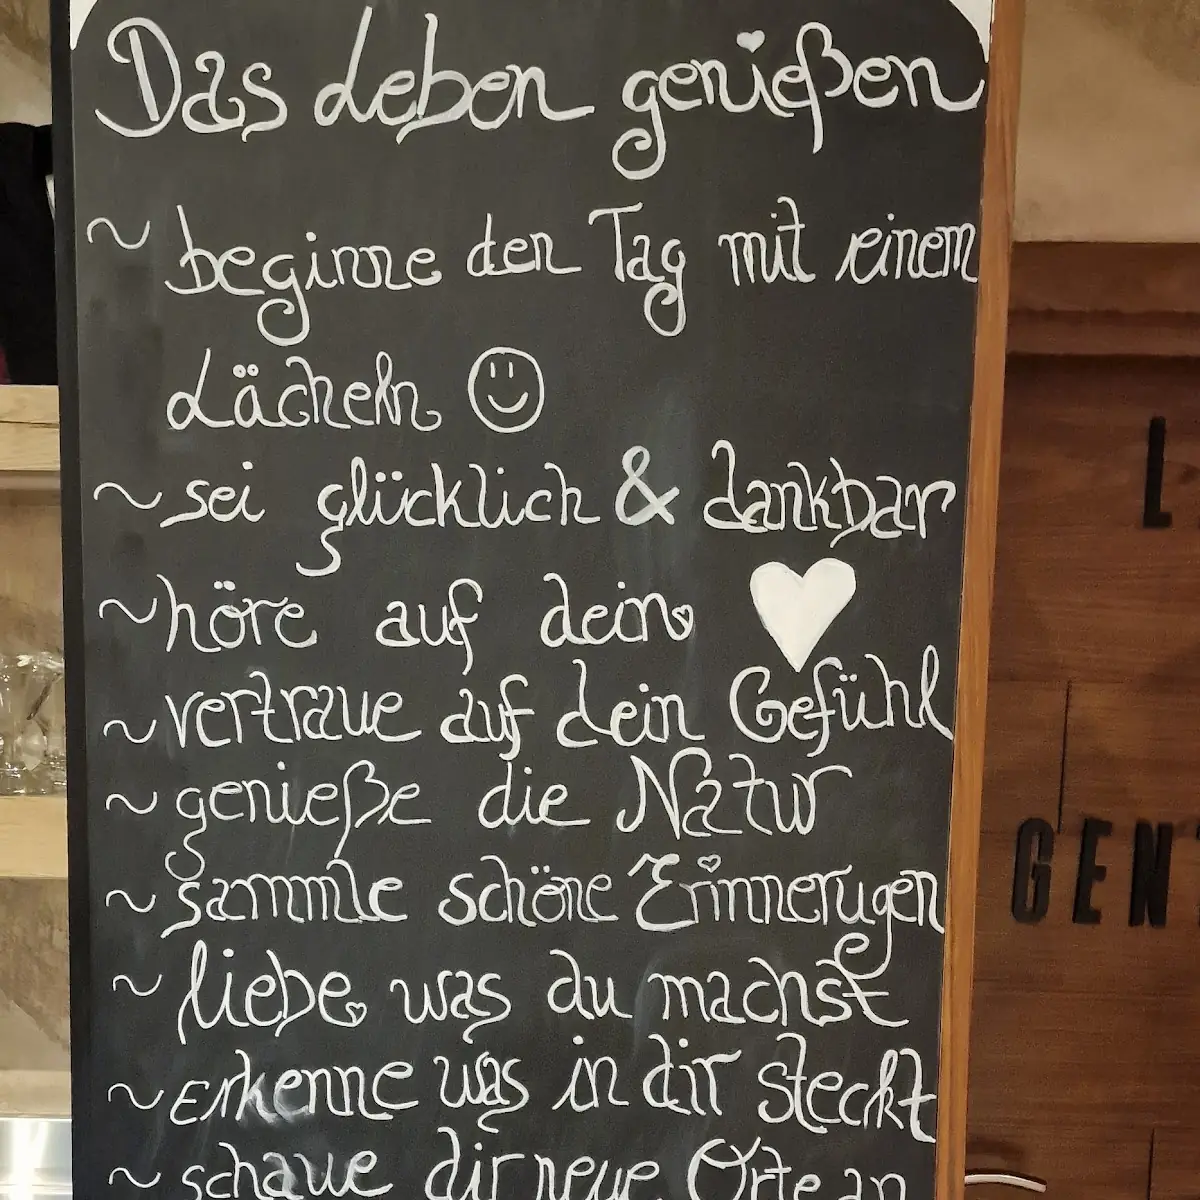 Das Leben genießen
~ beginne den Tag mit einem
Lächeln ☺
~ sei glücklich & dankbar
~ höre auf dein ♥
~ vertraue auf dein Gefühl
~ genieße die Natur
~ sammle schöne Erinnerugen
~ liebe was du machst
~ Erkenne was in dir steckt
~ schaue dir neue Orte an
L
GEN